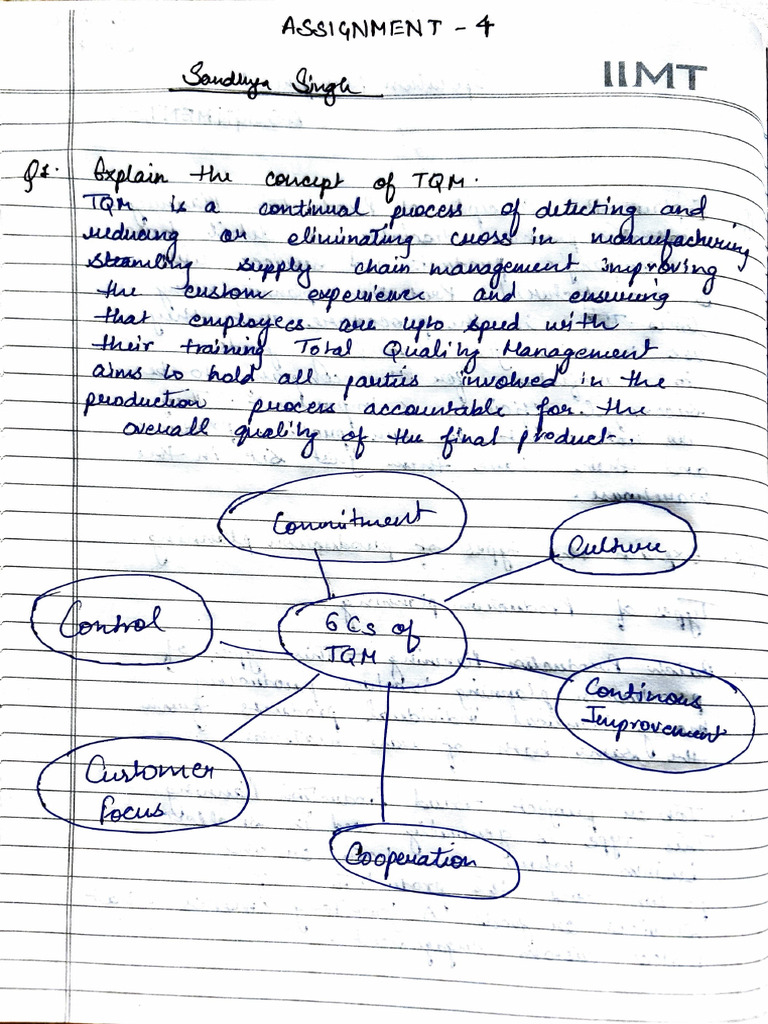 ASSIGNMENT - 4
Sandhya Singh
IIMT
Q1. Explain the concept of TQM.
TQM is a continual process of detecting and
reducing or eliminating cross in manufachering
streamling supply chain management improving
the custom experience and ensuring
that employees are upto speed with
their training Total Quality Management
aims to hold all parties involved in the
production process accountable for the
overall quality of the final product.
Commitment
Culture
Control
6 Cs of
TQM
Continous
Improvement
Customer
focus
Cooperation